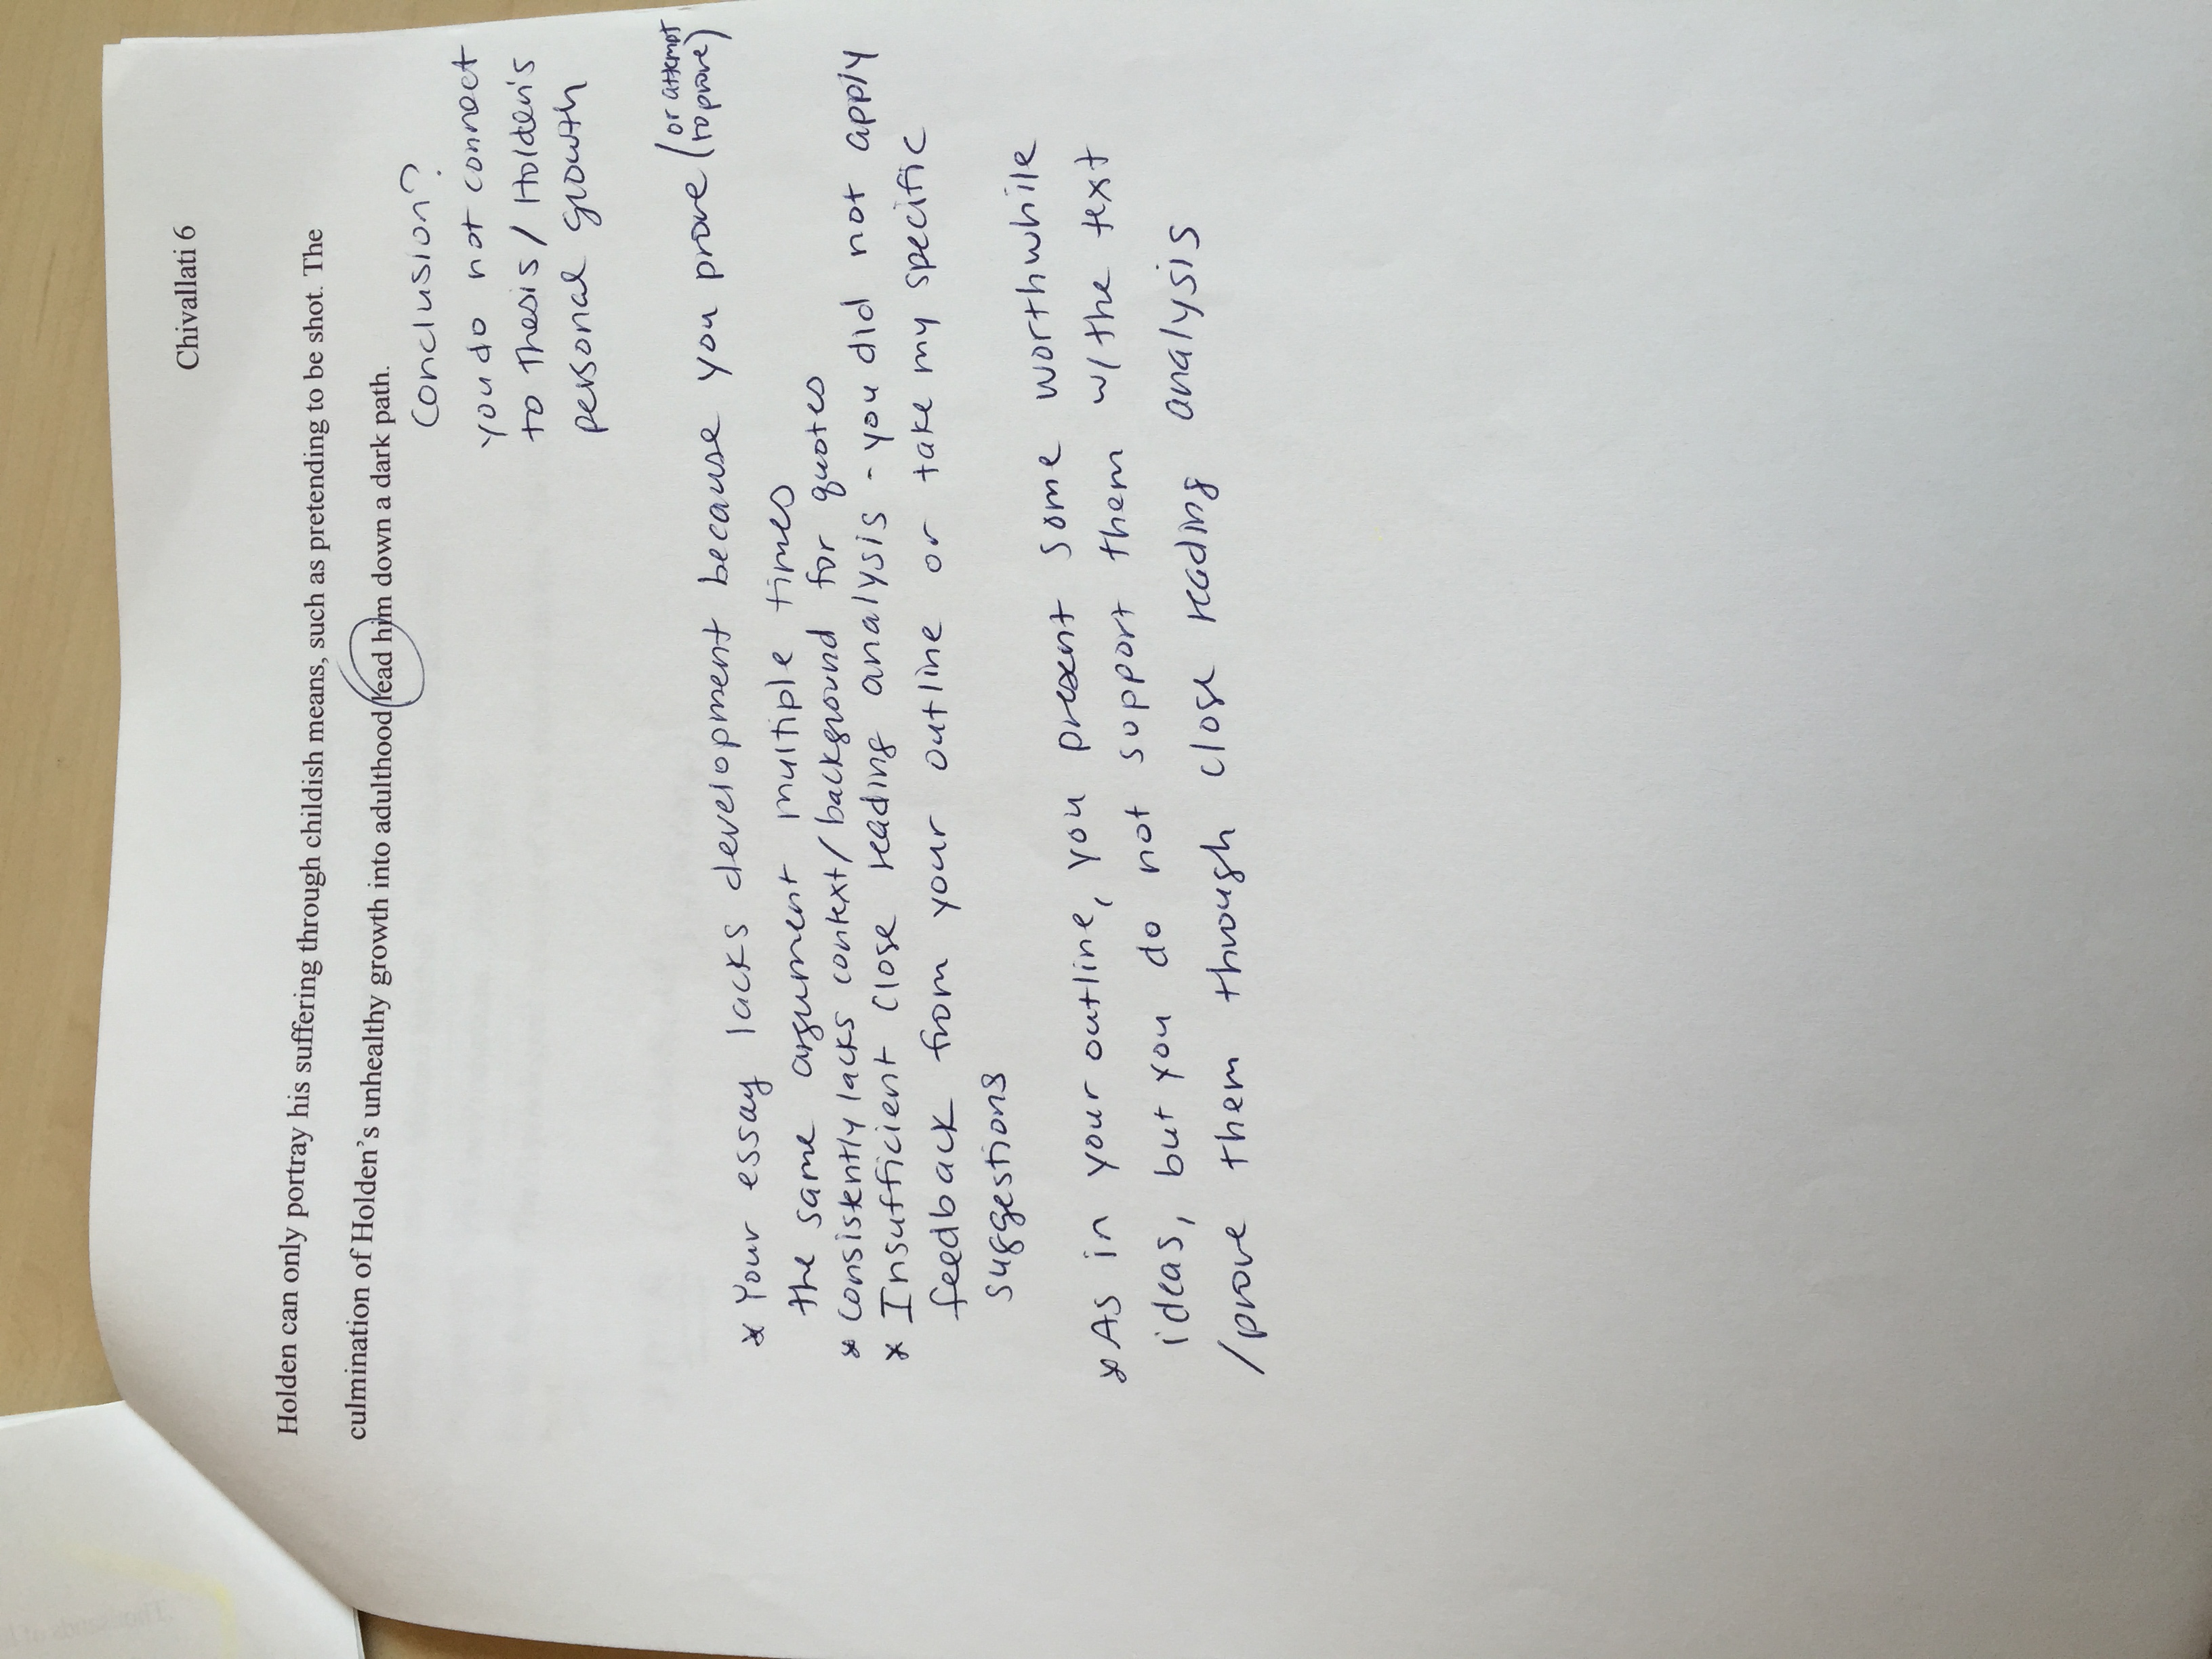 Chivallati 6
Holden can only portray his suffering through childish means, such as pretending to be shot. The
culmination of Holden's unhealthy growth into adulthood lead him down a dark path.
Conclusion?
you do not connect
to thesis / Holden's
personal growth
* Your essay lacks development because you prove (or attempt to prove)
the same argument multiple times
* Consistently lacks context/background for quotes
* Insufficient close reading analysis - you did not apply
feedback from your outline or take my specific
suggestions
* As in your outline, you present some worthwhile
ideas, but you do not support them w/ the text
/prove them through close reading analysis